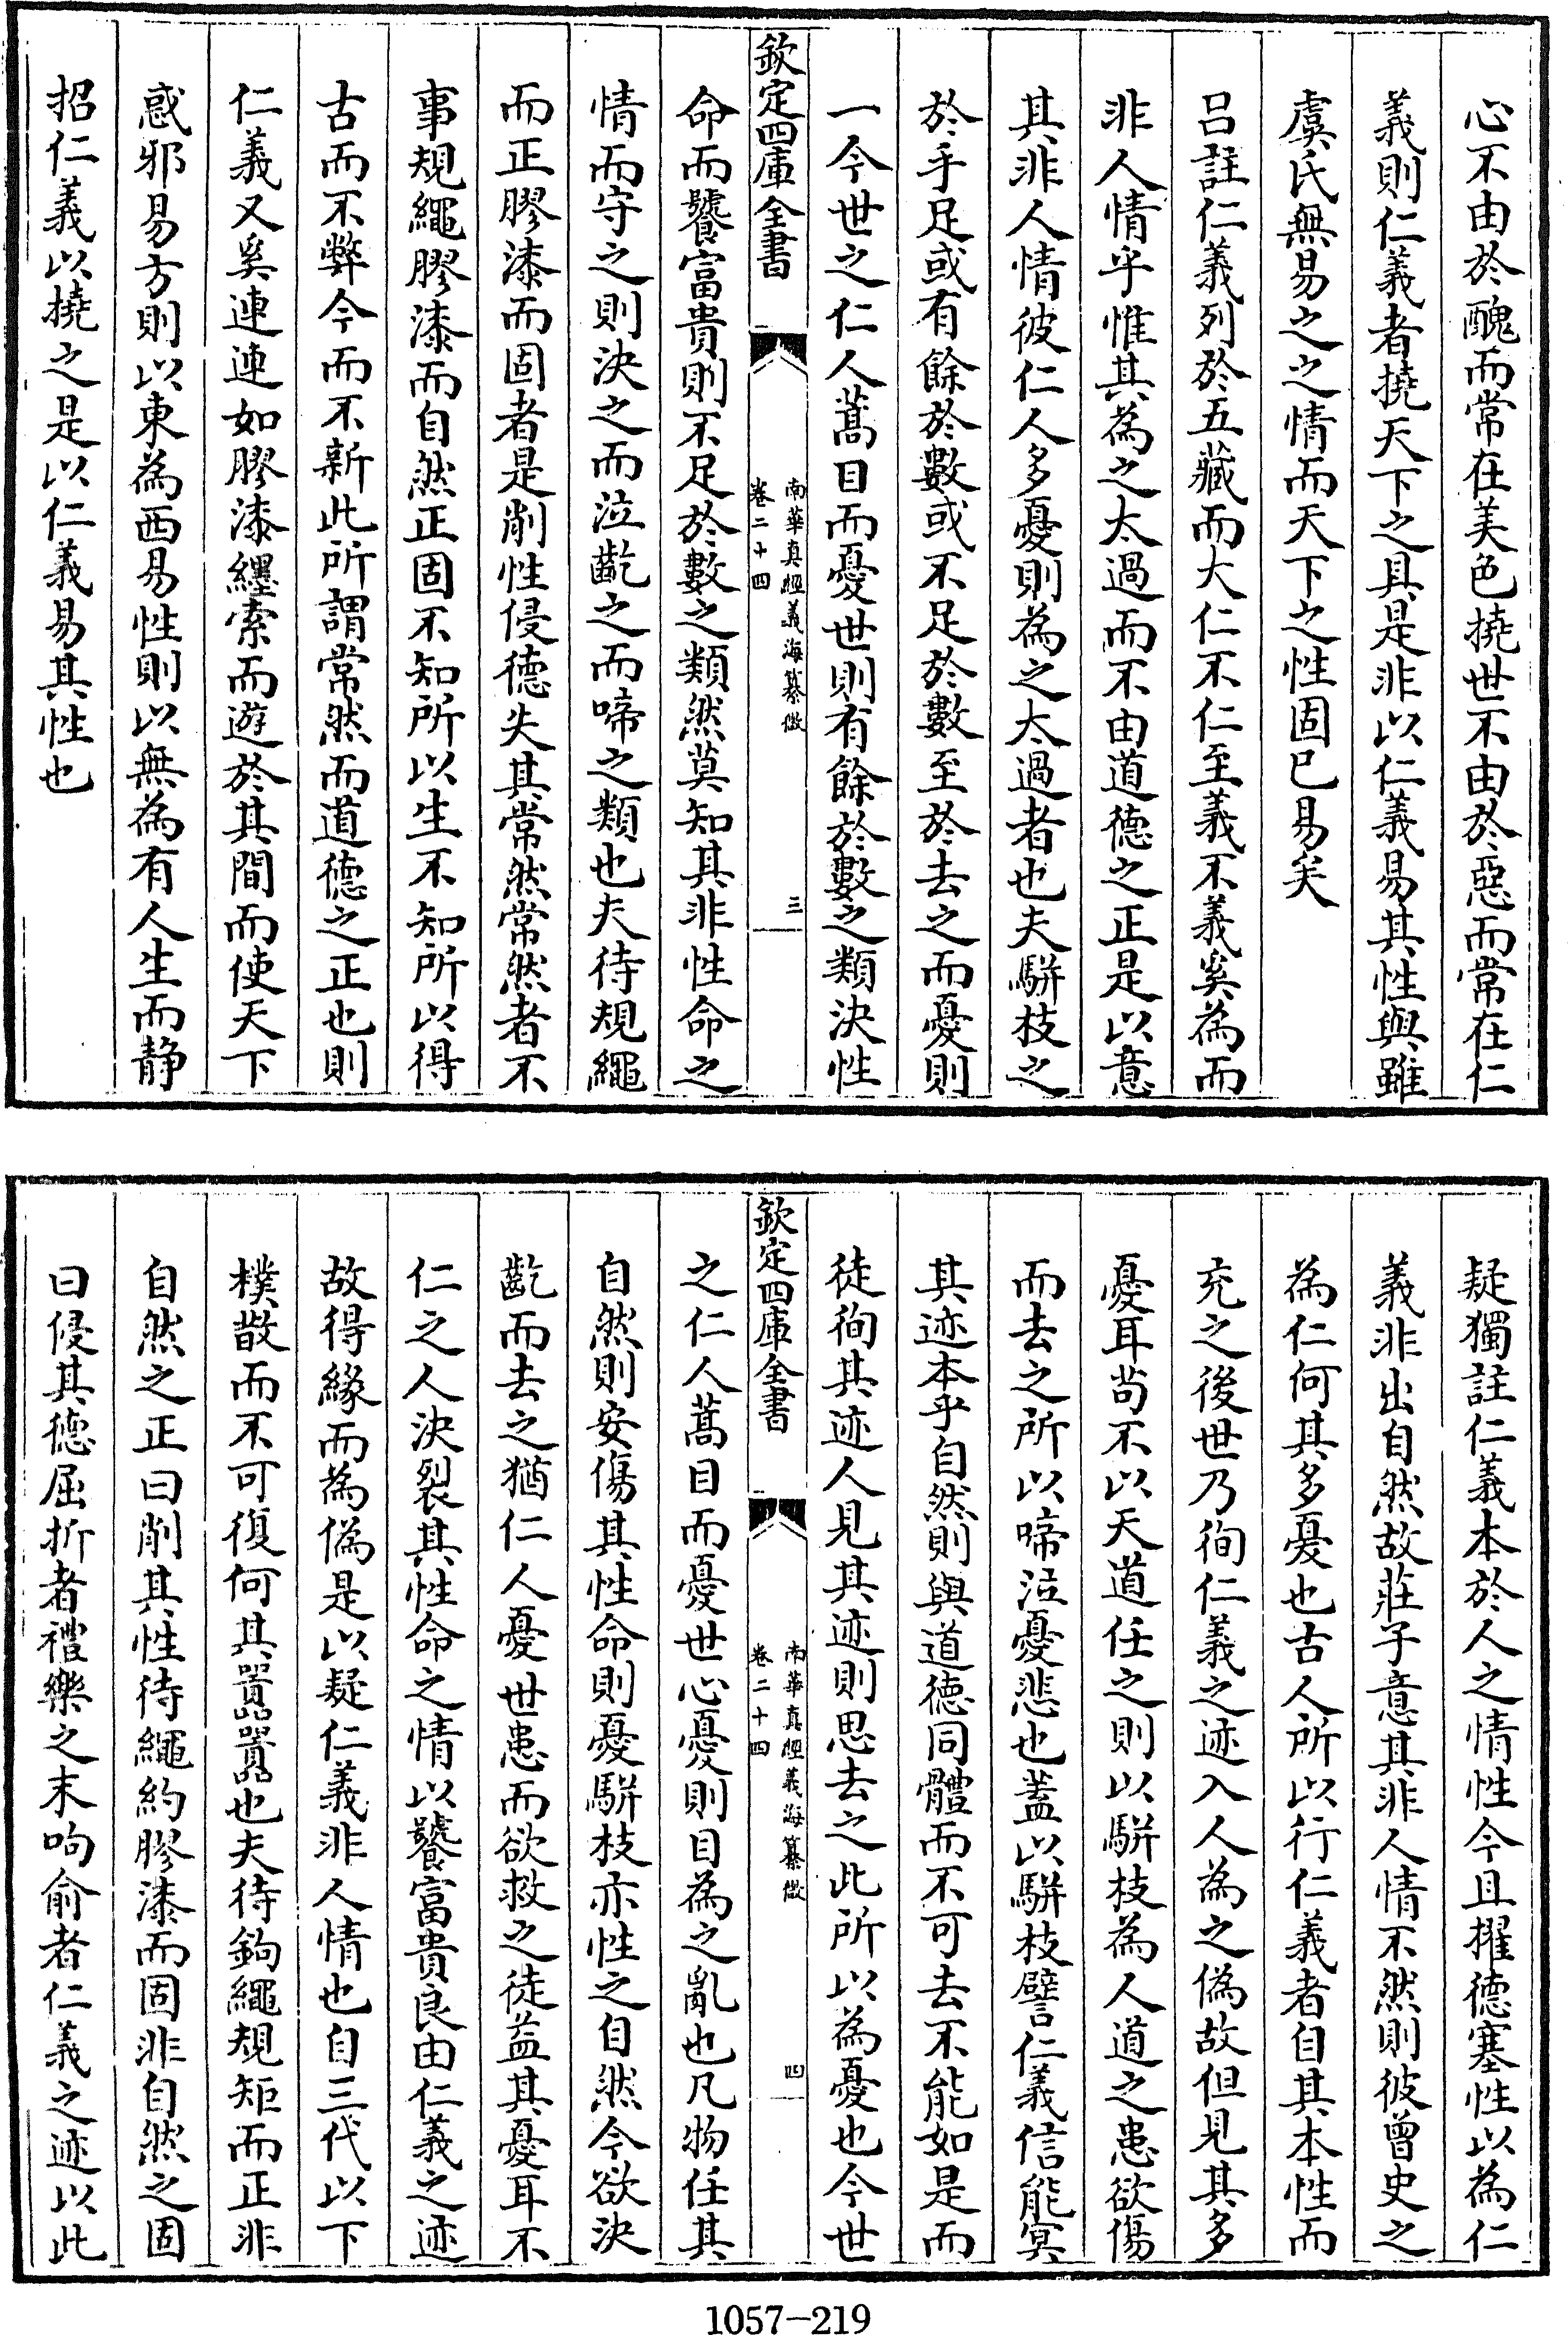 心不由於醜而常在美色撓世不由於惡而常在仁
義則仁義者撓天下之具是非以仁義易其性與雖
虞氏無易之之情而天下之性固已易矣
呂註仁義列於五藏而大仁不仁至義不義奚為而
非人情乎惟其為之太過而不由道德之正是以意
其非人情彼仁人多憂則為之太過者也夫駢枝之
於手足或有餘於數或不足於數至於去之而憂則
一今世之仁人蒿目而憂世則有餘於數之類決性
欽定四庫全書
南華真經義海纂微
卷二十四
三
命而饕富貴則不足於數之類然莫知其非性命之
情而守之則決之而泣齕之而啼之類也夫待規繩
而正膠漆而固者是削性侵德失其常然常然者不
事規繩膠漆而自然正固不知所以生不知所以得
古而不弊今而不新此所謂常然而道德之正也則
仁義又奚連連如膠漆纆索而遊於其間而使天下
惑邪易方則以東為西易性則以無為有人生而静
招仁義以撓之是以仁義易其性也
疑獨註仁義本於人之情性今且擢德塞性以為仁
義非出自然故莊子意其非人情不然則彼曾史之
為仁何其多憂也古人所以行仁義者自其本性而
充之後世乃徇仁義之迹入人為之偽故但見其多
憂耳尚不以天道任之則以駢枝為人道之患欲傷
而去之所以啼泣憂悲也蓋以駢枝譬仁義信能冥
其迹本乎自然則與道德同體而不可去不能如是而
徒徇其迹人見其迹則思去之此所以為憂也今世
欽定四庫全書
南華真經義海纂微
卷二十四
四
之仁人蒿目而憂世心憂則目為之亂也凡物任其
自然則安傷其性命則憂駢枝亦性之自然今欲決
齕而去之猶仁人憂世患而欲救之徒益其憂耳不
仁之人決裂其性命之情以饕富貴良由仁義之迹
故得緣而為偽是以疑仁義非人情也自三代以下
樸散而不可復何其囂囂也夫待鉤繩規矩而正非
自然之正曰削其性待繩約膠漆而固非自然之固
曰侵其德屈折者禮樂之末呴俞者仁義之迹以此
1057-219